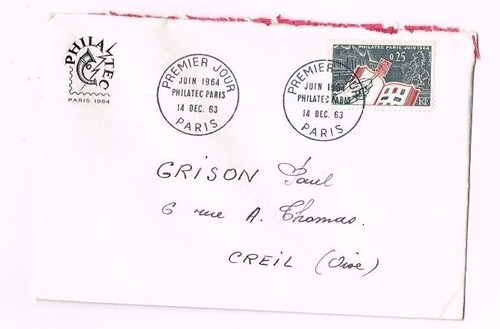 PHILATEC
PARIS 1964
PREMIER JOUR
JUIN 1964
PHILATEC PARIS
14 DEC. 63
PARIS
PREMIER JOUR
JUIN 1964
PHILATEC PARIS
14 DEC. 63
PARIS
PHILATEC PARIS JUIN 1964
0,25
GRISON Paul
6 rue A. Thomas.
CREIL (Oise)